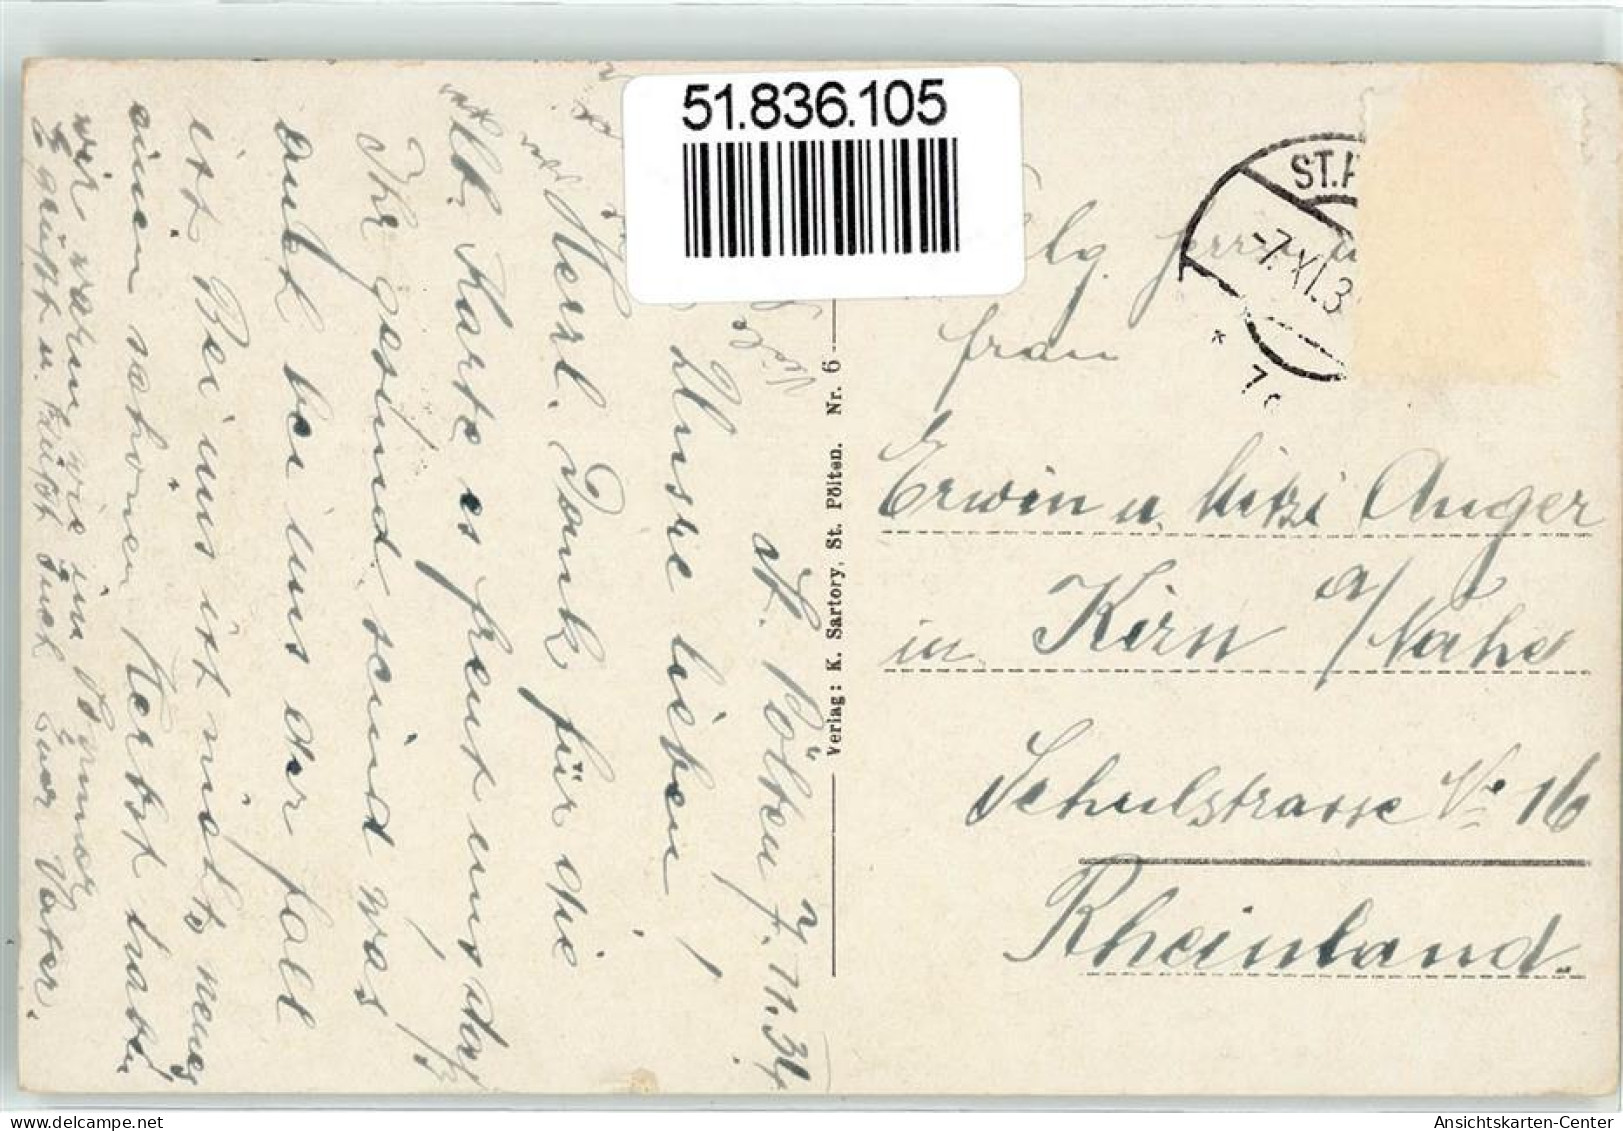 51.836.105
ST.P
-7.XI.3
frau
Erwin u. Mitzi Anger
in Kirn a/Nahe
Schulstrasse No 16
Rheinland.
Verlag: K. Sartory, St. Pölten. Nr. 6
St. Pölten 7. 11. 34
Unsre lieben!
Herzl. Dank für die
lb. Karte es freut uns dass
Ihr gesund seind was
auch bei uns der fall
ist. Bei uns ist nichts neues
einen schönen Herbst hatten
wir warm wie im Sommer
Es grüßt u. küßt Euch Euer Vater.
Ansichtskarten-Center